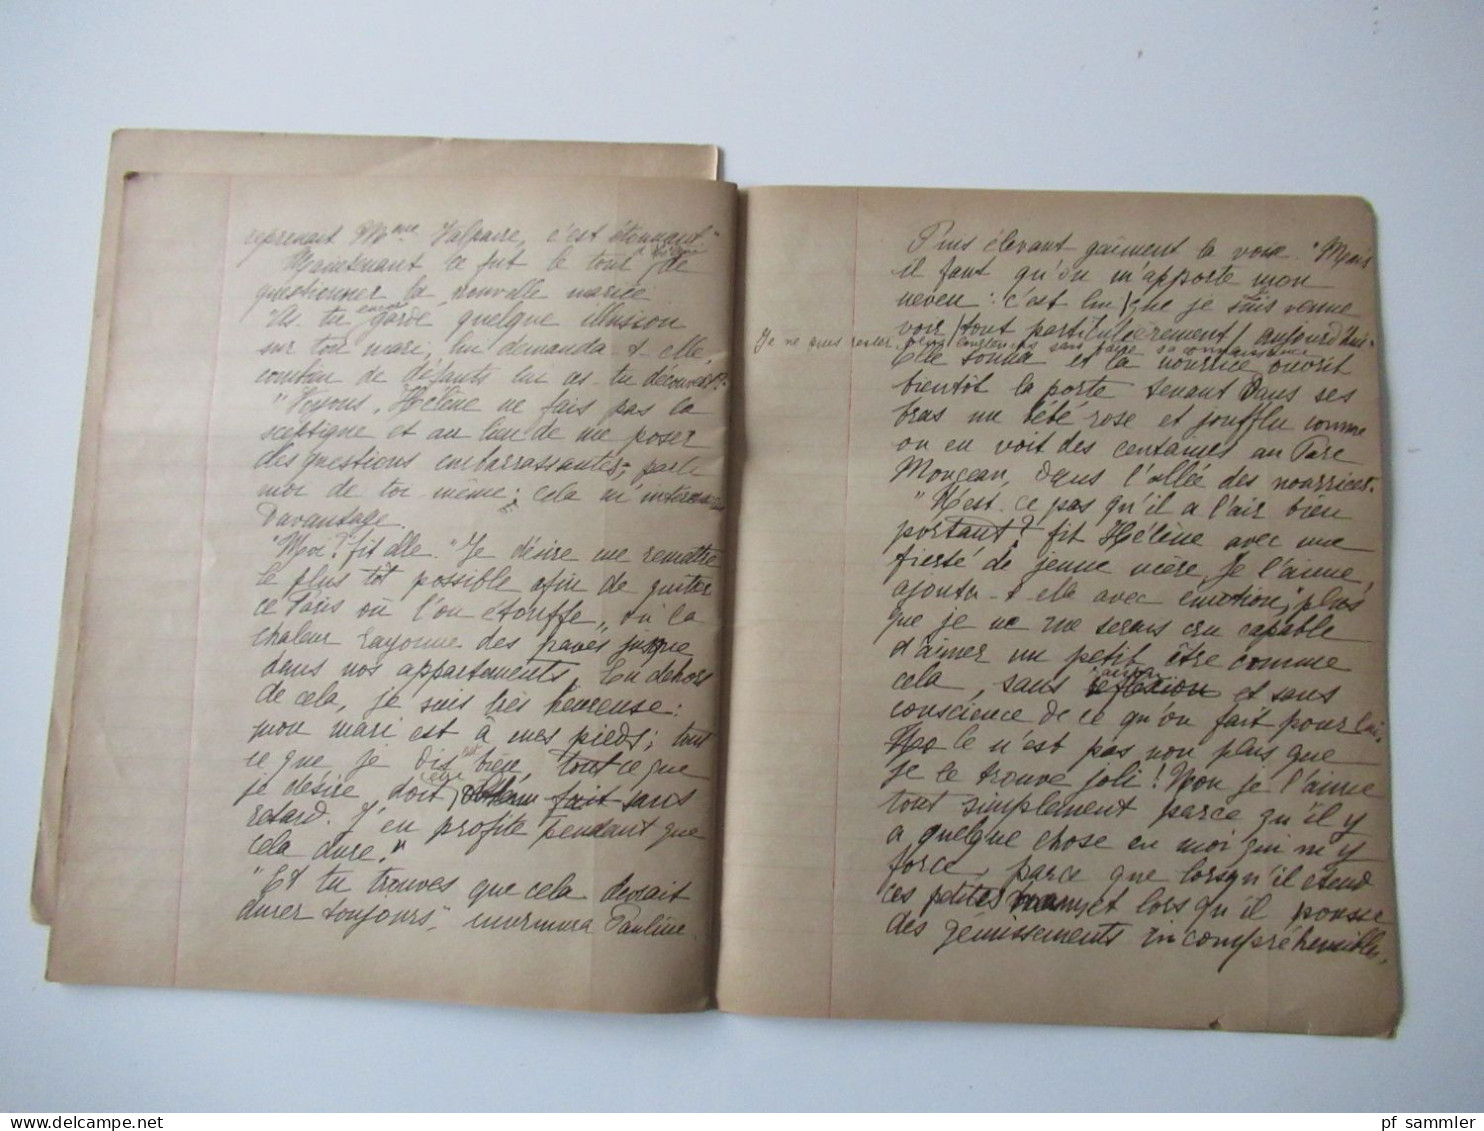 reprenait Mme Valpaire, c'est étonnant"
Maintenant ce fut le tour de
questionner la nouvelle mariée
"As-tu encore gardé quelque illusion
sur ton mari, lui demanda-t-elle,
combien de défauts lui as-tu découvert?"
"Voyons, Hélène ne fais pas la
sceptique et au lieu de me poser
des questions embarrassantes, parle
moi de toi-même; cela m'intéresse
davantage.
"Moi? fit elle." "Je désire me remettre
le plus tôt possible afin de quitter
ce Paris où l'on étouffe, où la
chaleur rayonne des pavés jusque
dans nos appartements. En dehors
de cela, je suis très heureuse:
mon mari est à mes pieds; tout
ce que je dis est bien, tout ce que
je désire doit être fait sans
retard. J'en profite pendant que
cela dure."
"Et tu trouves que cela devrait
durer toujours", murmura Pauline.
Puis élevant gaiment la voix "Mais
il faut qu'on m'apporte mon
neveu: c'est lui que je suis venue
voir tout particulièrement aujourd'hui.
Je ne puis rester plus longtemps sans faire sa connaissance
Elle sonna et la nourrice ouvrit
bientôt la porte tenant dans ses
bras un bébé rose et joufflu comme
on en voit des centaines au Parc
Monceau, dans l'allée des nourrices.
"N'est-ce pas qu'il a l'air bien
portant? fit Hélène avec une
fierté de jeune mère, je l'aime,
ajouta-t-elle avec émotion, plus
que je ne me serais cru capable
d'aimer un petit être comme
cela, sans raison réflexion et sans
conscience de ce qu'on fait pour lui.
Ce n'est pas non plus que
je le trouve joli! Non je l'aime
tout simplement parce qu'il y
a quelque chose en moi qui m'y
force, parce que lorsqu'il étend
ces petites mains et lorsqu'il pousse
des gémissements incompréhensibles,
pf sammler
DELCAMPE.NET